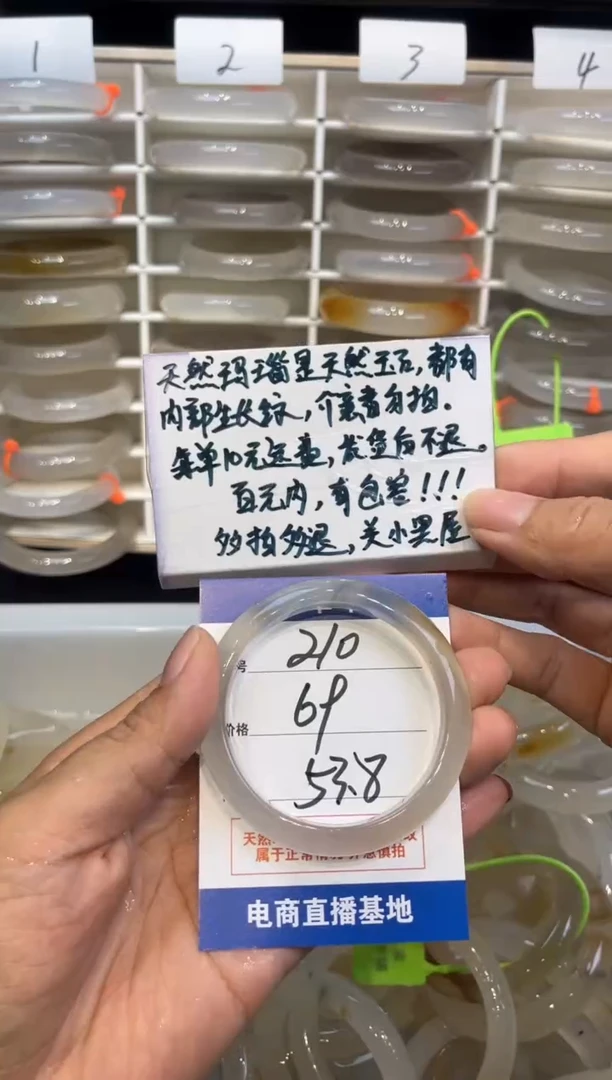 1
2
3
4
天然玛瑙是天然玉石，都有
内部生长纹，介意者勿拍.
每单10元运费，发货后不退。
百元内，有包容!!!
多拍多退，关小黑屋
号 210
价格 69
53.8
天然
属于正常情
慎拍
电商直播基地